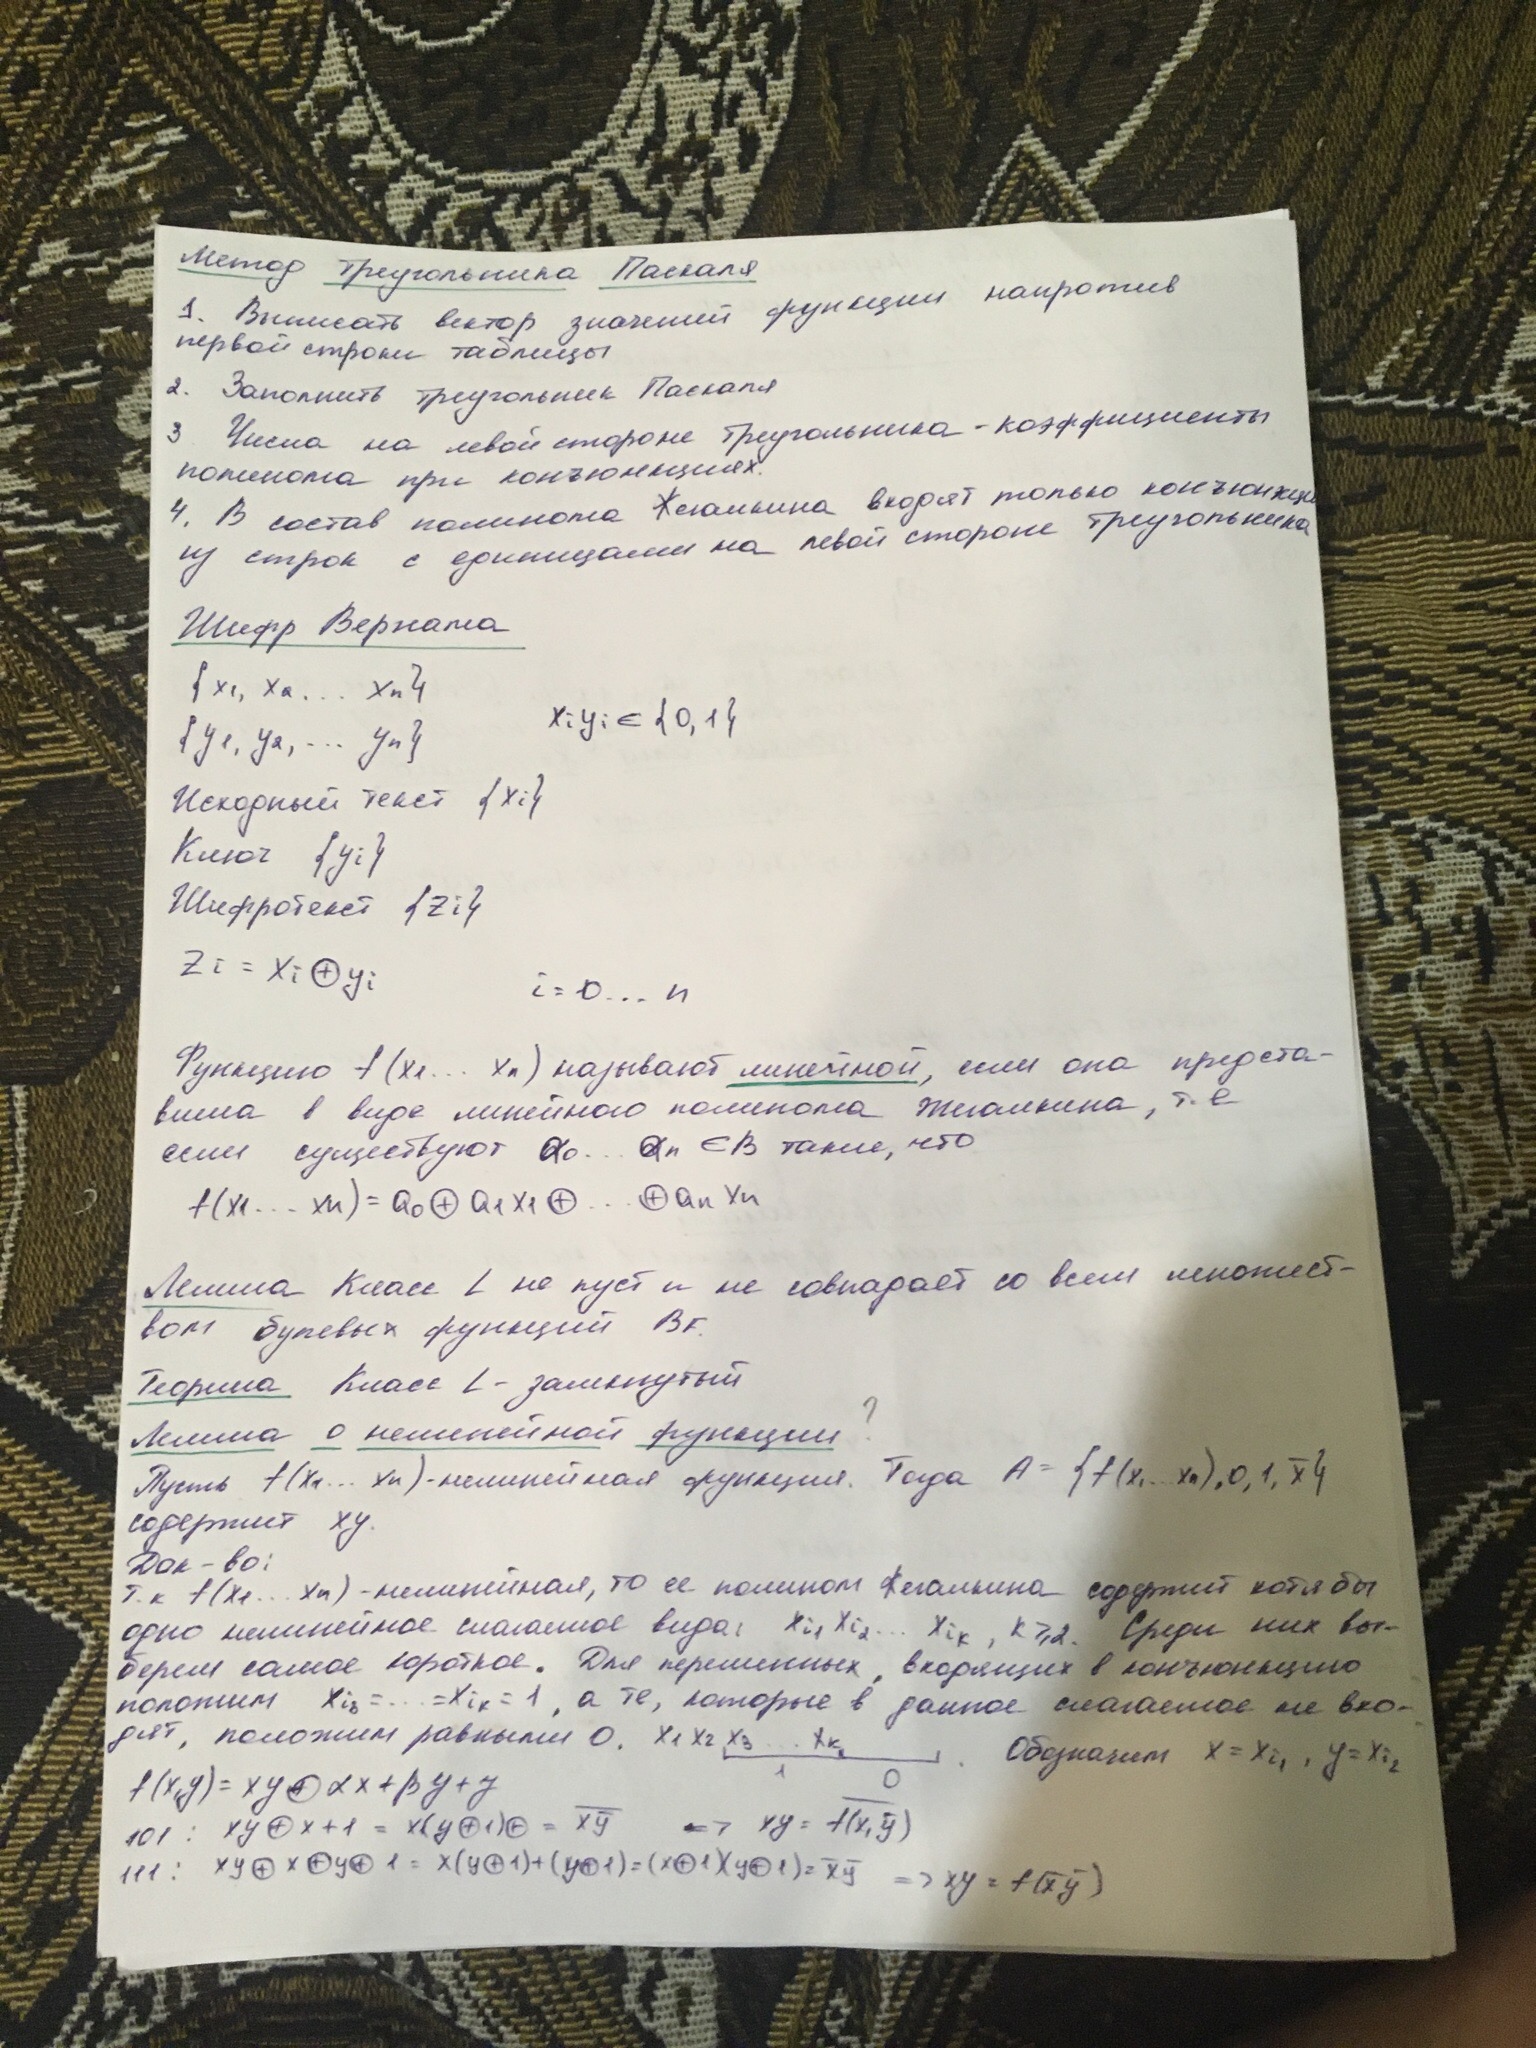 Метод треугольника Паскаля
1. Выписать вектор значений функции напротив
первой строки таблицы
2. Заполнить треугольник Паскаля
3 Числа на левой стороне треугольника - коэффициенты
полинома при конъюнкциях.
4. В состав полинома Жегалкина входят только конъюнкции
из строк с единицами на левой стороне треугольника
Шифр Вернама
{x1, x2 ... xn}
xi yi ∈ {0,1}
{y1, y2, ... yn}
Исходный текст {xi}
Ключ {yi}
Шифротекст {zi}
zi = xi ⊕ yi
i = 0 ... n
Функцию f(x1 ... xn) называют линейной, если она предста-
вима в виде линейного полинома Жегалкина, т.е
если существуют a0 ... an ∈ B такие, что
f(x1 ... xn) = a0 ⊕ a1x1 ⊕ ... ⊕ an xn
Лемма Класс L не пуст и не совпадает со всем множест-
вом булевых функций
Теорема Класс L - замкнутый
Лемма о нелинейной функции ?
Пусть f(x1 ... xn) - нелинейная функция. Тогда A = {f(x1 ... xn), 0, 1, x̄}
содержит xy.
Док-во:
т.к f(x1 ... xn) - нелинейная, то ее полином Жегалкина содержит хотя бы
одно нелинейное слагаемое вида: xi1 xi2 ... xik, k ≥ 2. Среди них вы-
берем самое короткое. Для переменных, входящих в конъюнкцию
положим xi3 = ... = xik = 1, а те, которые в данное слагаемое не вхо-
дят, положим равными 0. x1 x2 x3 ... xk . Обозначим x = xi1, y = xi2
1 0
f(x,y) = xy ⊕ αx + βy + γ
101: xy ⊕ x + 1 = x(y ⊕ 1) ⊕ = \overline{xȳ} => xy = \overline{f(x,ȳ)}
111: xy ⊕ x ⊕ y ⊕ 1 = x(y ⊕ 1) + (y ⊕ 1) = (x ⊕ 1)(y ⊕ 1) = x̄ȳ => xy = f(x̄ȳ)